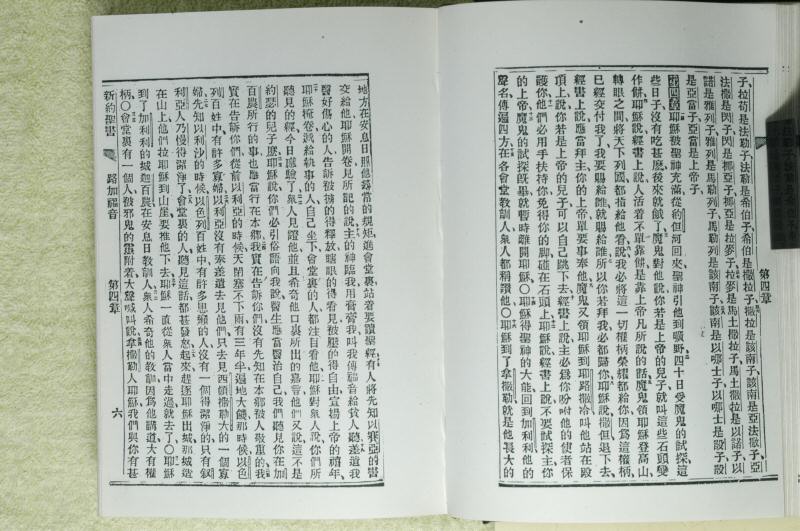 第四章
子拉苟是法勒子法勒是希伯子希伯是撒拉子撒拉是該南子該南是亞法撒子亞
法撒是閃子閃是挪亞子挪亞是拉麥子拉麥是馬土撒拉子馬土撒拉是以諾子以
諾是雅列子雅列是馬勒列子馬勒列是該南子該南是以哪士子以哪士是設子設
是亞當子亞當是上帝子
第四章耶穌被聖神充滿從約但河回來聖神引他到曠野四十日受魔鬼的試探這
些日子沒有吃甚麽後來就餓了魔鬼對他說你若是上帝的兒子就叫這些石頭變
作餅耶穌說經書上說人活着不單靠餅是靠上帝凡所說的話魔鬼領耶穌登高山
轉眼之間將天下列國都指給他看說我必將這一切權柄榮耀都給你因爲這權柄
已經交付我了我要賜給誰就賜給誰所以你若拜我必都歸你耶穌說撒但退下去
經書上說應當拜主你的上帝單要事奉他魔鬼又領耶穌到耶路撒冷叫他站在殿
頂上說你若是上帝的兒子可以自己跳下去經書上說主必爲你吩咐他的使者保
護你他們必用手扶持你免得你的脚碰在石頭上耶穌說經書上說不要試探主你
的上帝魔鬼的試探旣畢就暫時離開耶穌〇耶穌得聖神的大能回到加利利他的
聲名傳遍四方在各會堂教訓人衆人都稱讚他〇耶穌到了拿撒勒就是他長大的
地方在安息日照他當的規矩進會堂裏站着要讀聖經有人將先知以賽亞的書
交給他耶穌開卷見所記的說主的神臨我用膏膏我叫我傳福音給貧人差遣我
醫好傷心的人告訴被擄的得釋放瞎眼的得看見被壓的得自由宣揚上帝的禧年
耶穌掩卷遞給執事的人自己坐下會堂裏的人都注目看他耶穌對衆人說你們所
聽見的經今日應驗了衆人見證他並且希奇他口裏所出的嘉言他們又說這不是
約瑟的兒子麽耶穌說你們必引俗語向我說醫生應當醫治自己我們聽見你在加
百農所行的事也應當行在本鄉我實在告訴你們沒有先知在本鄉被人敬重的我
實在告訴你們從前以利亞的時候天閉塞不下雨有三年半遍地大饑那時候以色
列百姓中有許多寡婦以利亞沒有奉差遣去見他們只去見西頓撒勒大的一個寡
婦先知以利沙的時候以色列百姓中有許多患癩的人沒有一個得潔淨的只有敘
利亞人乃慢得潔淨了會堂裏的人聽見這話都甚發怒起來趕逐耶穌出城那城造
在山上他們拉耶穌到山崖要推他下去耶穌一直從衆人當中走過就去了〇耶穌
到了加利利的城迦百農在安息日教訓人衆人希奇他的教訓因爲他講道大有權
柄〇會堂裏有一個人被邪鬼的靈附着大聲喊叫說拿撒勒人耶穌我們與你有甚
新約聖書 路加福音 第四章 六